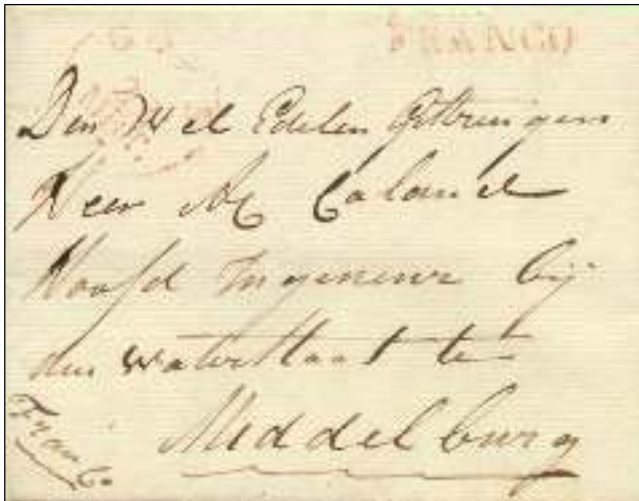 FRANCO
Den Wel Edelen Gestrengen
Heer Caland
Hoofd Ingenieur bij
den waterstaat te
Middelburg
Franco